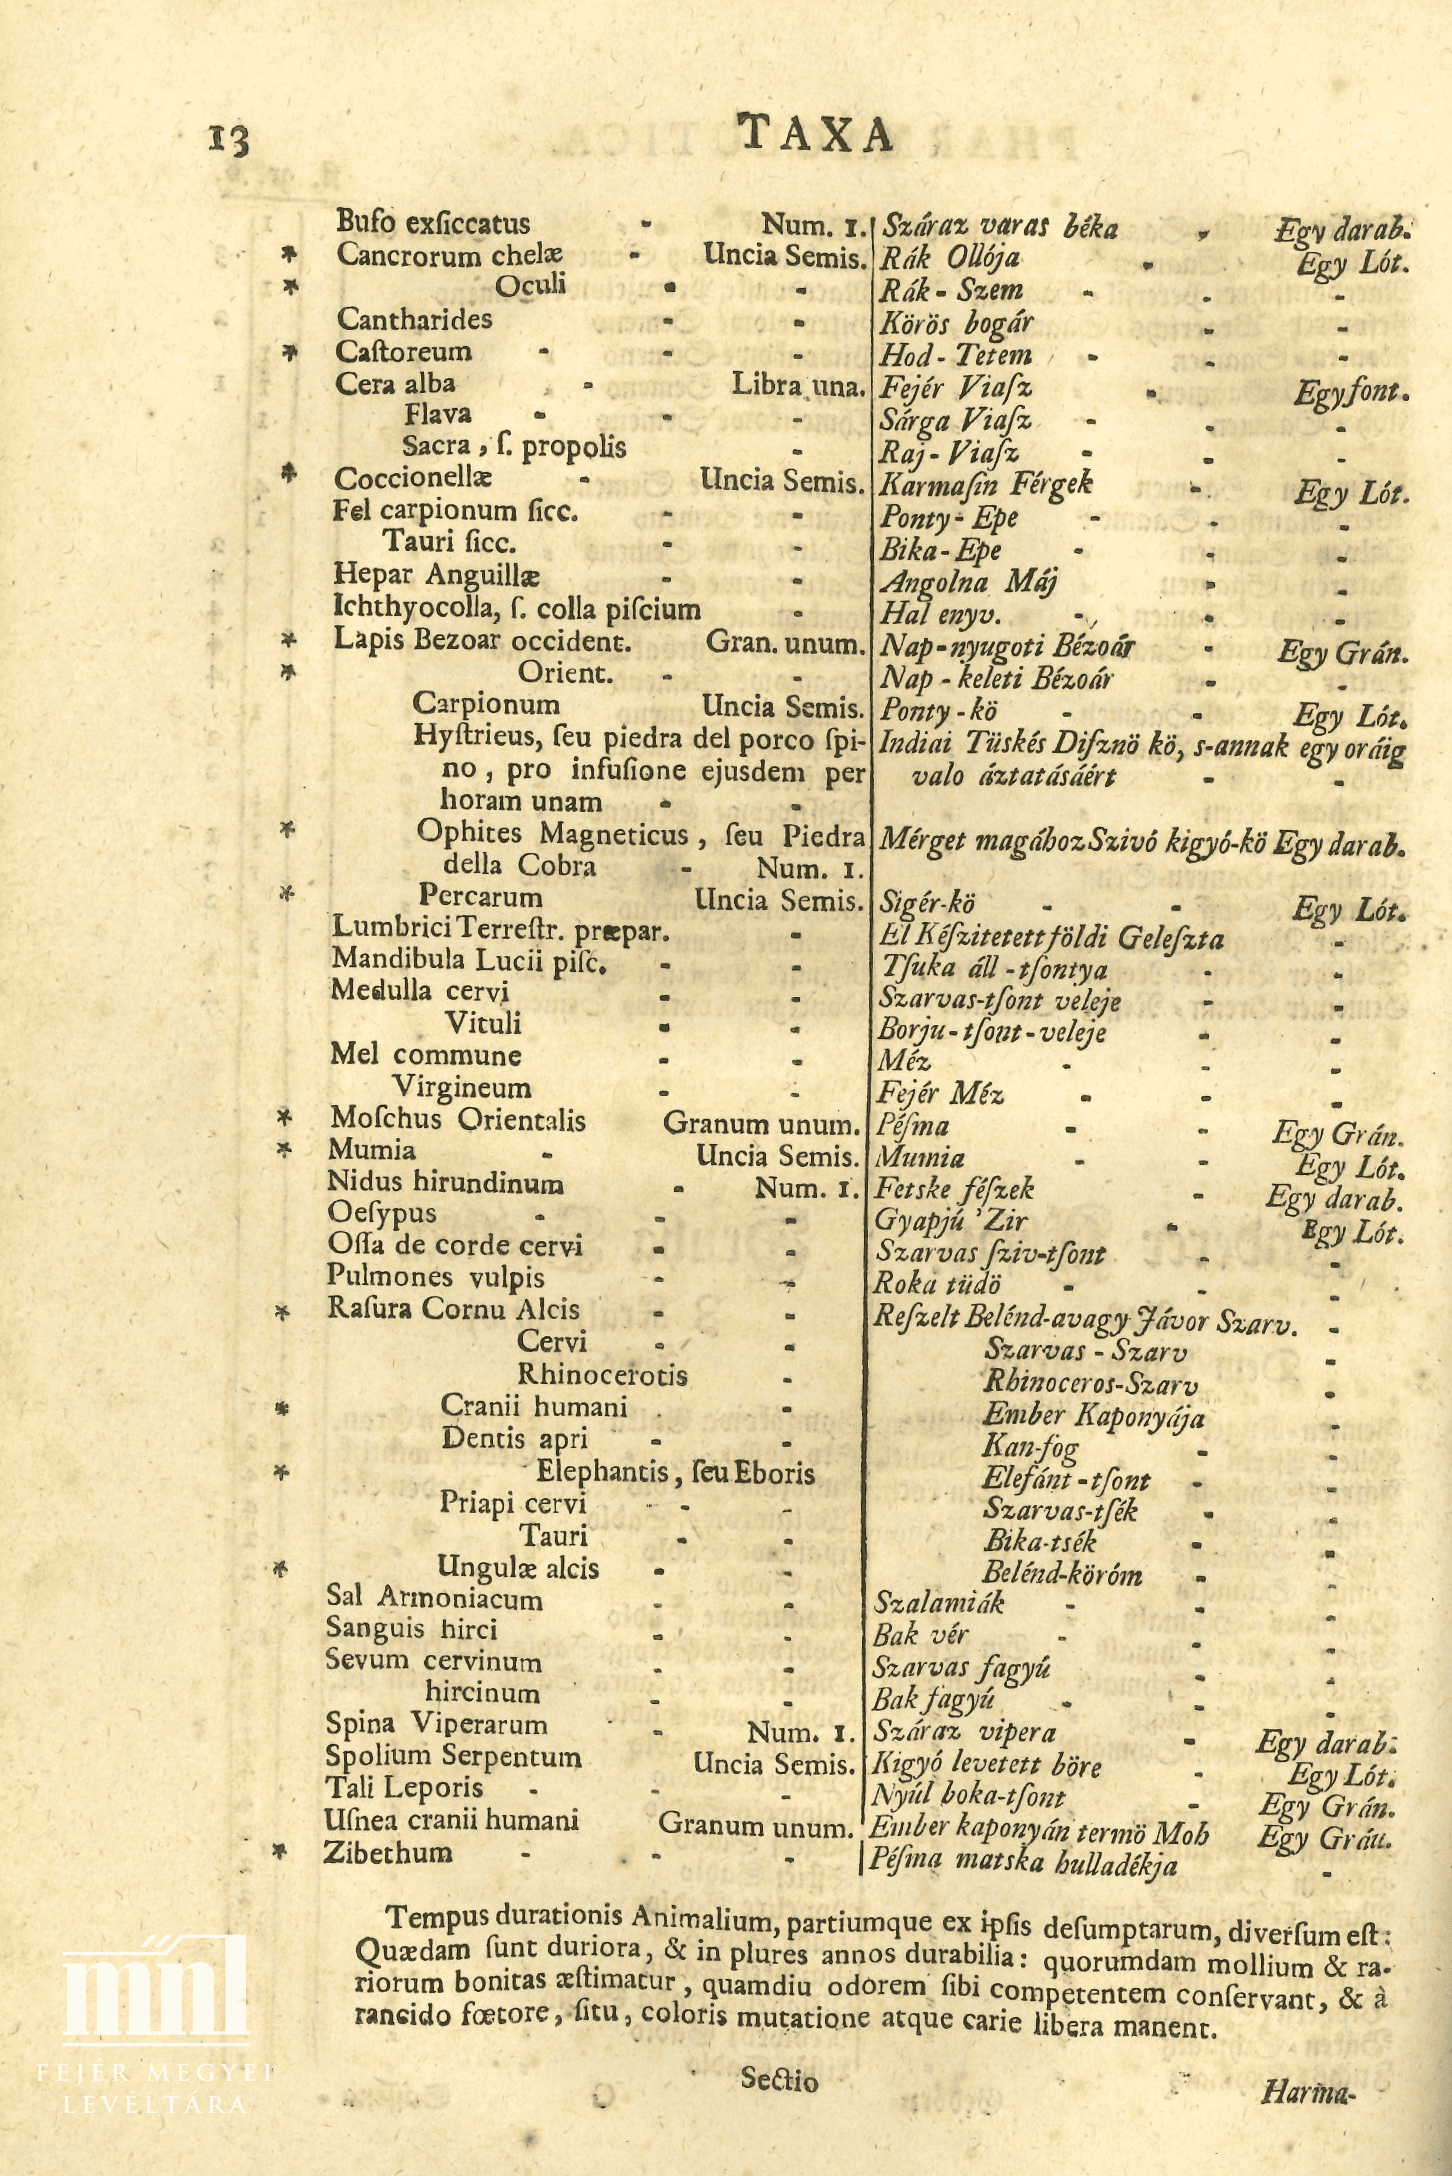 13 TAXA
Bufo exſiccatus - Num. 1. Száraz varas béka - Egy darab.
* Cancrorum chelæ - Uncia Semis. Rák Ollója - Egy Lót.
* Oculi - - Rák-Szem - - -
Cantharides - - Körös bogár - -
* Caſtoreum - - - Hod-Tetem - - -
Cera alba - Libra una. Fejér Viaſz - Egy font.
Flava - - - Sárga Viaſz - - -
Sacra, ſ. propolis - Raj-Viaſz - - -
* Coccionellæ - Uncia Semis. Karmaſin Férgek - Egy Lót.
Fel carpionum ſicc. - - Ponty-Epe - - -
Tauri ſicc. - - Bika-Epe - - -
Hepar Anguillæ - - Angolna Máj - -
Ichthyocolla, ſ. colla piſcium - Hal enyv. - - -
* Lapis Bezoar occident. Gran. unum. Nap-nyugoti Bézoár - Egy Grán.
* Orient. - - Nap-keleti Bézoár - -
Carpionum Uncia Semis. Ponty-kö - - Egy Lót.
Hyſtrieus, ſeu piedra del porco ſpi- Indiai Tüskés Diſznö kö, s-annak egy oráig
no, pro infuſione ejusdem per valo áztatásáért - -
horam unam - -
* Ophites Magneticus, ſeu Piedra Mérget magához Szivó kigyó-kö Egy darab.
della Cobra - Num. 1.
* Percarum Uncia Semis. Sigér-kö - - Egy Lót.
Lumbrici Terreſtr. præpar. - El Kéſzitetett földi Geleſzta -
Mandibula Lucii piſc. - - Tſuka áll-tſontya - -
Medulla cervi - - Szarvas-tſont veleje - -
Vituli - - Borju-tſont-veleje - -
Mel commune - - Méz - - -
Virgineum - - Fejér Méz - - -
* Moſchus Orientalis Granum unum. Péſma - - Egy Grán.
* Mumia - Uncia Semis. Mumia - - Egy Lót.
Nidus hirundinum - Num. 1. Fetske féſzek - Egy darab.
Oeſypus - - - Gyapjú 'Zir - Egy Lót.
Oſſa de corde cervi - - Szarvas ſziv-tſont - -
Pulmones vulpis - - Roka tüdö - - -
* Raſura Cornu Alcis - - Reſzelt Belénd-avagy Jávor Szarv. -
Cervi - - Szarvas-Szarv -
Rhinocerotis - Rhinoceros-Szarv -
* Cranii humani - Ember Kaponyája -
Dentis apri - - Kan-fog - -
* Elephantis, ſeu Eboris Elefánt-tſont - -
Priapi cervi - - Szarvas-tſék - -
Tauri - - Bika-tsék - -
* Ungulæ alcis - - Belénd-köróm - -
Sal Armoniacum - - Szalamiák - - -
Sanguis hirci - - Bak vér - - -
Sevum cervinum - - Szarvas fagyú - -
hircinum - - Bak fagyú - - -
Spina Viperarum - Num. 1. Száraz vipera - Egy darab.
Spolium Serpentum Uncia Semis. Kigyó levetett böre - Egy Lót.
Tali Leporis - - - Nyúl boka-tſont - Egy Grán.
Uſnea cranii humani Granum unum. Ember kaponyán termö Moh Egy Grán.
* Zibethum - - - Péſma matska hulladékja -
Tempus durationis Animalium, partiumque ex ipſis deſumptarum, diverſum eſt:
Quædam ſunt duriora, & in plures annos durabilia: quorumdam mollium & ra-
riorum bonitas æſtimatur, quamdiu odorem ſibi competentem conſervant, & à
rancido fœtore, ſitu, coloris mutatione atque carie libera manent.
Sectio Harma-
mnl
FEJÉR MEGYEI
LEVÉLTÁRA